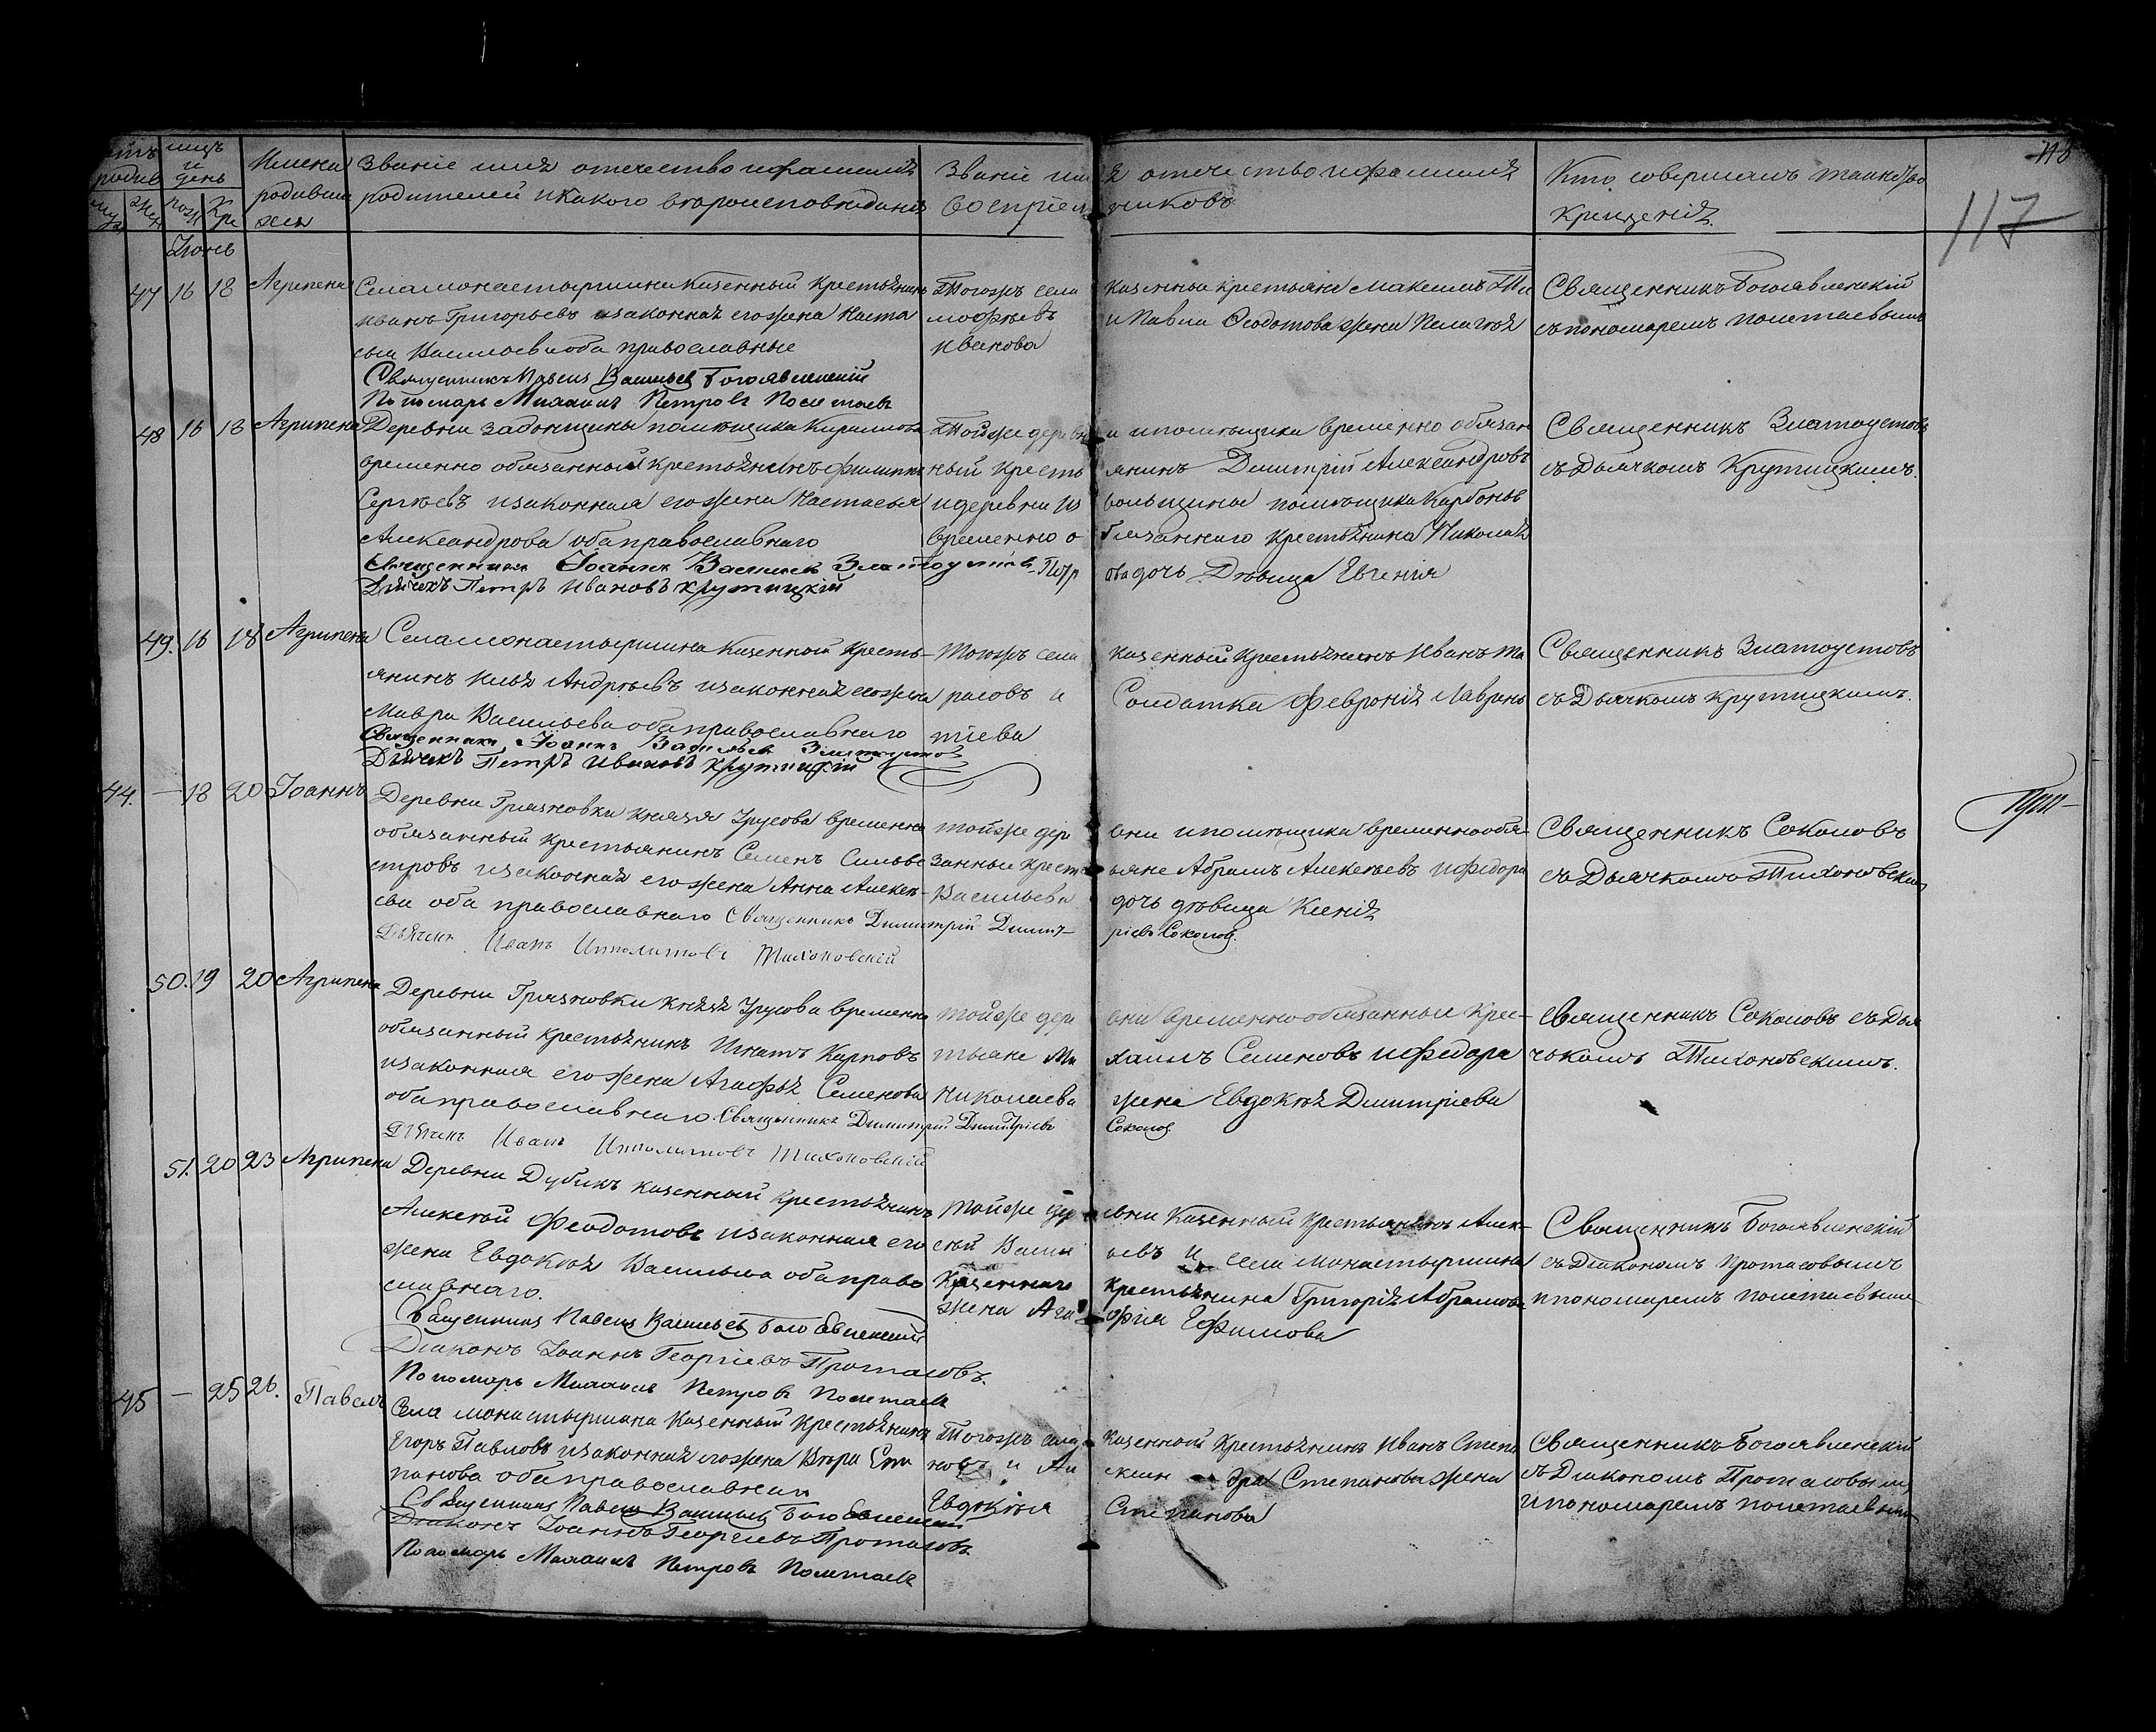 Имена Званіе имя отечество и фамилія Званіе имя отечество и фамилія Кто совершалъ таинство
родивши родителей и какого вероисповеданія восприемниковъ Крещенія.
хся
муж. жен. рож. Кре
117
Іюнь
47 16 18 Агрипена Села монастырщины казенный крестьянинъ
Иванъ Григорьевъ и законная его жена Наста
сья Васильева оба православные
Священникъ Павелъ Васильевъ Богоявленскій
Пономарь Михаилъ Петровъ Полетаевъ
Тогожъ села казенные крестьяне Максимъ Ти
мофѣевъ и Павла Ѳедотова жена Пелагея
Иванова
Священникъ Богоявленскій
съ пономаремъ Полетаевымъ
48 16 18 Агрипена Деревни Задонщины помещика Кирилова
временно обязанный крестьянинъ Филипъ
Сергѣевъ и законная его жена Настасья
Александрова оба православнаго
Священникъ Іоаннъ Васильевъ Златоустовъ
Дьячекъ Петръ Ивановъ Крутицкій
Тойже деревни и помѣщика временно обязан
ный крестьянинъ Димитрій Александровъ
и деревни помѣщика
временно обязаннаго крестьянина Николая
дочь Девица Евгенія
Священникъ Златоустовъ
съ Дьячкомъ Крутицкимъ.
49. 16 18 Агрипена Села монастырщина казенный кресть-
янинъ Илья Андрѣевъ и законная его жена
Мавра Васильева оба православнаго
Священникъ Іоаннъ Васильевъ Златоустовъ
Дьячекъ Петръ Ивановъ Крутицкій
Тогожъ села казенный крестьянинъ Иванъ Та
расовъ и Солдатка Февронія Лаврень
тіева
Священникъ Златоустовъ
съ Дьячкомъ Крутицкимъ.
44. — 18 20 Іоаннъ Деревни Грязновки князя Урусова временно
обязанный крестьянинъ Семенъ Сильве
стровъ и законная его жена Анна Алексѣ-
ева оба православнаго Священникъ Димитрій Димит-
ріевъ Соколов.
Дьячекъ Иванъ Ипполитовъ Тихоновскій
тойже деревни и помѣщика временно обя-
занные крестьяне Абрамъ Алексѣевъ и Федора
Васильева дочь дѣвица Ксенія
Священникъ Соколовъ
съ Дьячкомъ Тихоновским
50. 19 20 Агрипена Деревни Грязновки князя Урусова временно
обязанный крестьянинъ Игнатъ Карповъ
и законная его жена Агафья Семенова
оба православнаго. Священникъ Димитрій Димитріевъ
Соколов
Дьячекъ Иванъ Ипполитовъ Тихоновскій
тойже деревни временнообязанные крес-
тьяне Михаилъ Семеновъ и Федора
Николаева жена Евдокія Димитріева
Священникъ Соколовъ съ дья
чкомъ Тихоновскимъ.
51. 20 23 Агрипена Деревни Дубикъ казенный крестьянинъ
Алексѣй Феодотовъ и законная его
жена Евдокія Васильева оба право
славнаго.
Священникъ Павелъ Васильевъ Богоявленскій
Діаконъ Іоаннъ Георгіевъ Протасовъ.
Пономарь Михаилъ Петровъ Полетаевъ
тойже деревни казенный крестьянинъ Алек-
сѣй Васильевъ и села монастырщина
Казеннаго крестьянина Григорія Абрамова
жена Агафія Ефимова
Священникъ Богоявленскій
съ Діакономъ Протасовымъ
и пономаремъ Полетаевым
45 — 25 26. Павелъ Села монастырщина казенный крестьянинъ
Егоръ Павловъ и законная его жена Вѣра Сте
панова оба православнаи
Священникъ Павелъ Васильевъ Богоявленскій
Діаконъ Іоаннъ Георгіевъ Протасовъ
Пономарь Михаилъ Петровъ Полетаевъ
Тогожъ села казенной крестьянинъ Иванъ Степа
новъ и Александра Степанова жена
Евдокія Степанова
Священникъ Богоявленскій
съ Діакономъ Протасовым
и пономаремъ Полетаевым